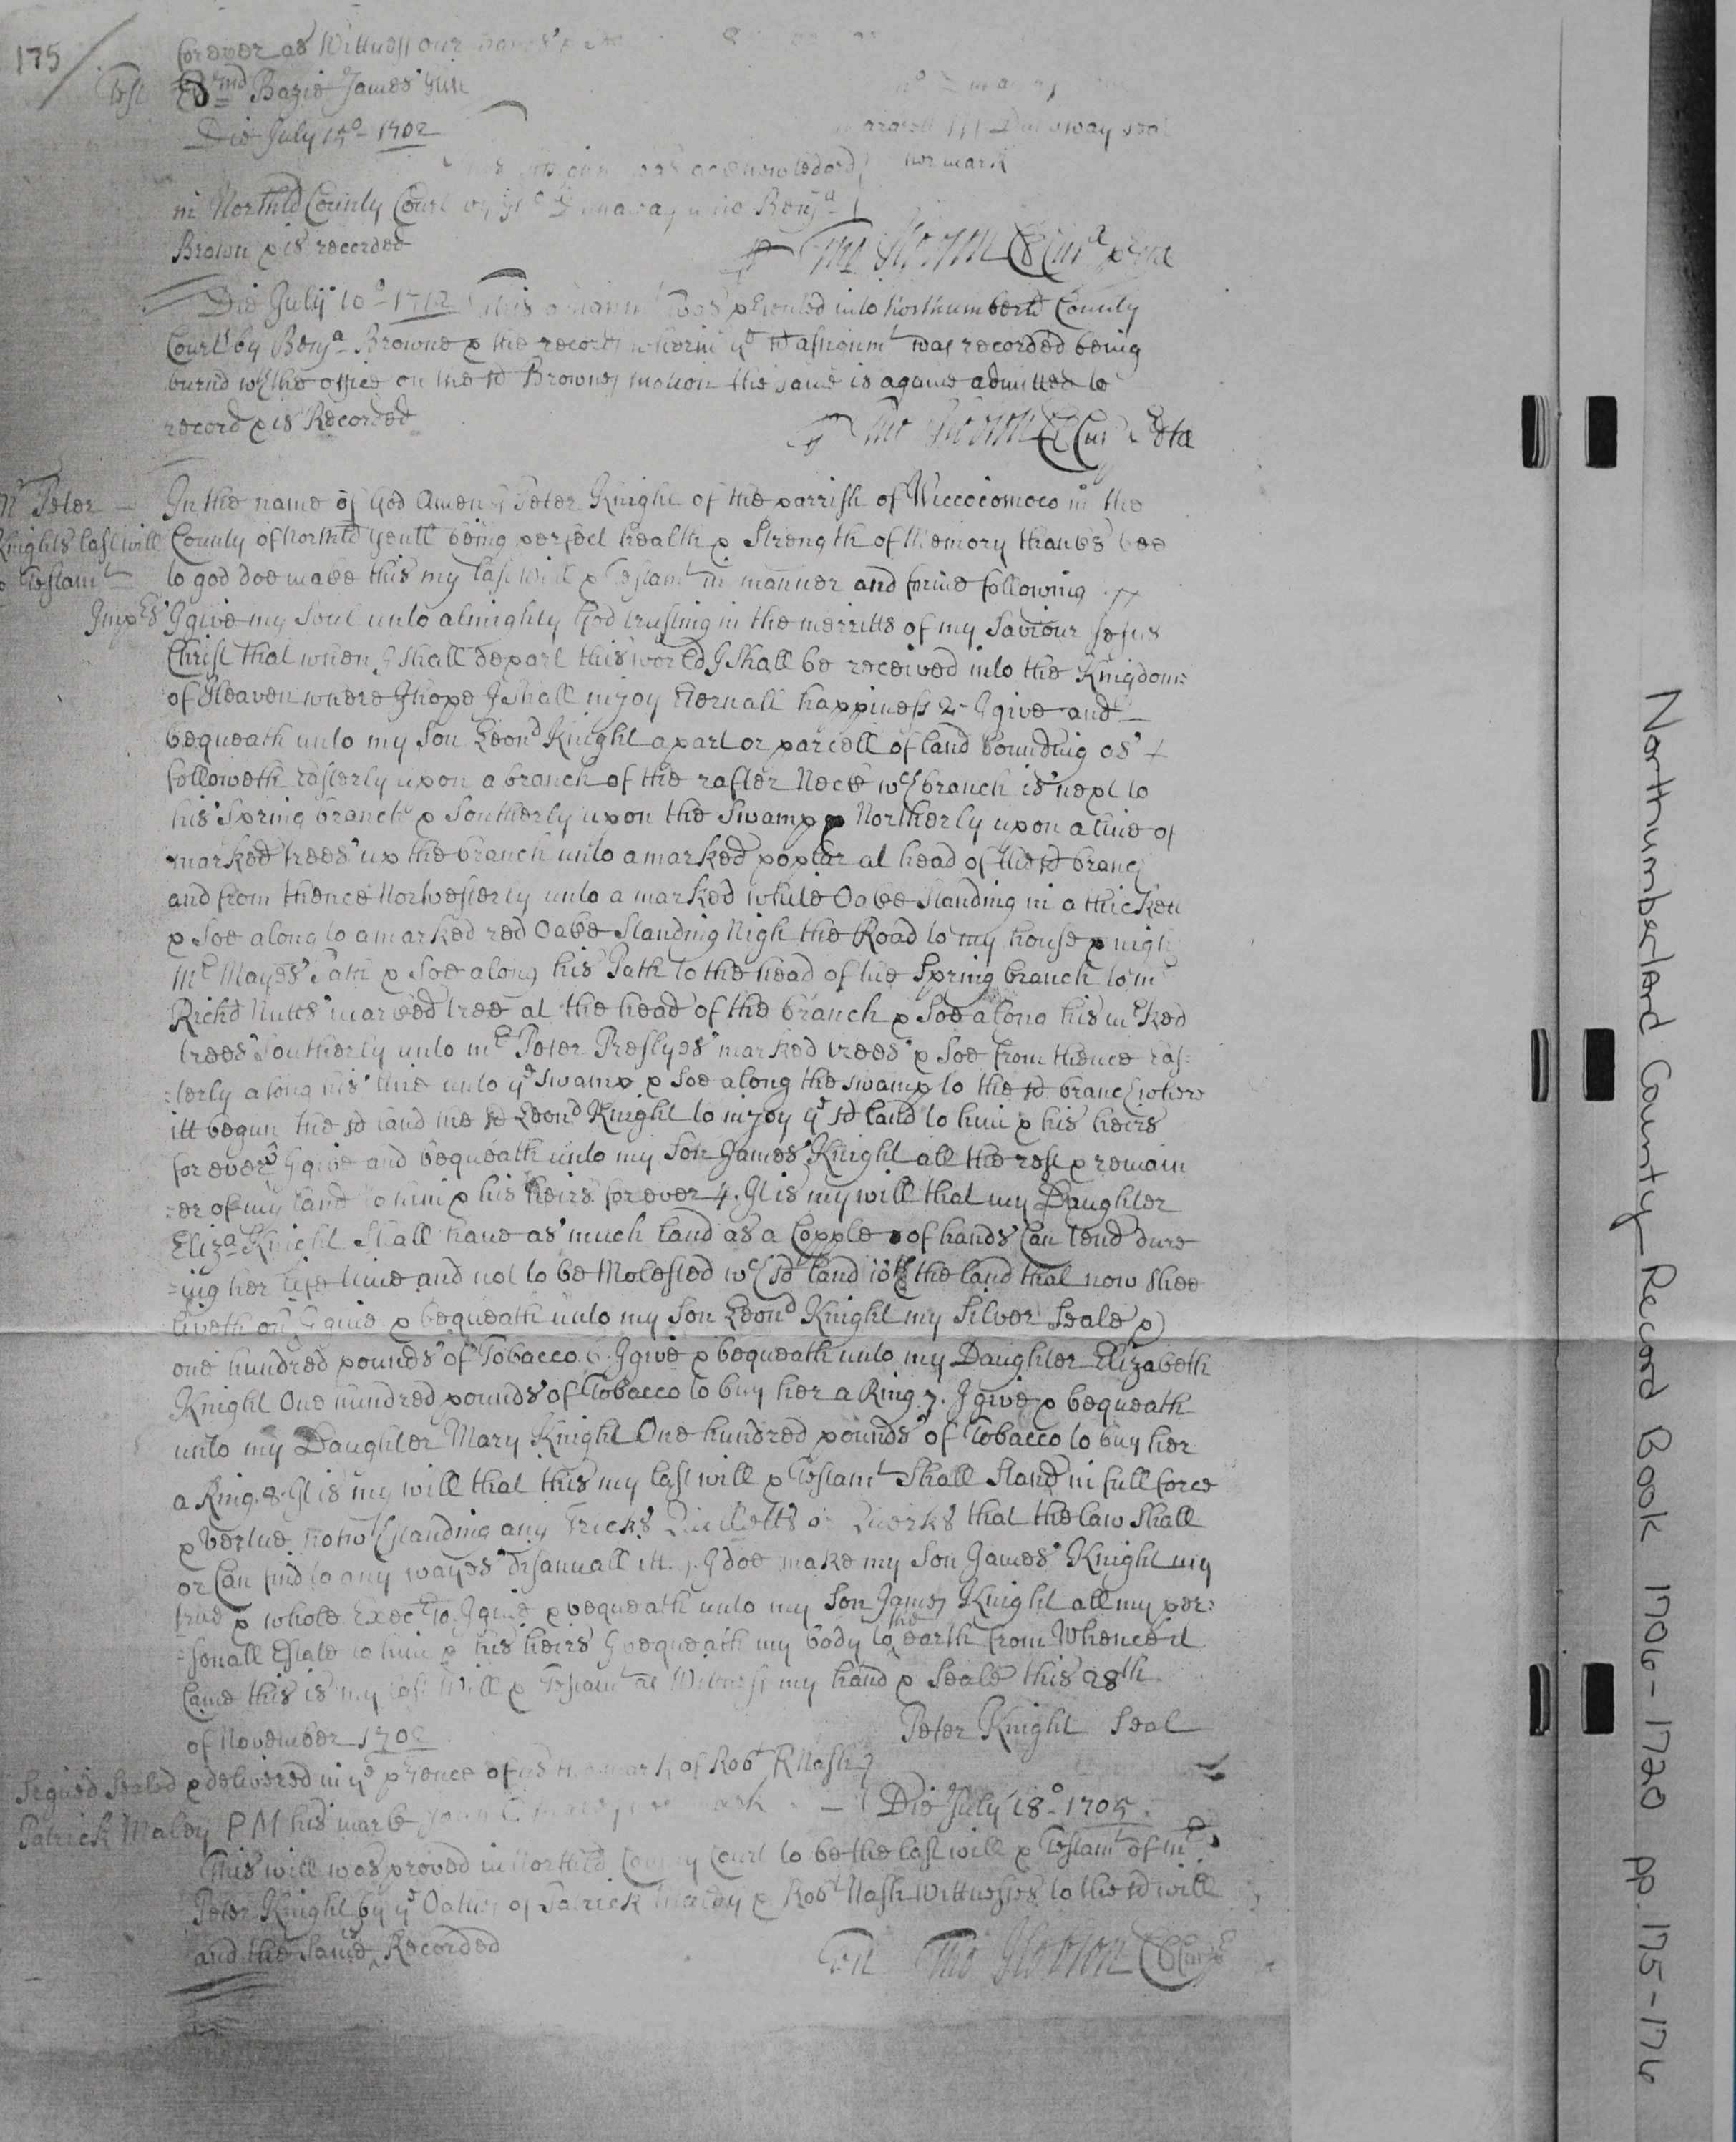 175
forever as Wittness our hands &
Test Edmd Bazie James Hill
Die July 15o 1702
Dunaway seal
acknowledged her mark
in Northld County Court by Dunaway unto Benja
Brown & is recorded
Tho Hobson Cl Cur
Die July 10o 1712 This assignmt was psented into Northumberld County
Court by Benja Browne & the records wherin ye sd assignmt was recorded being
burnd wth the office on the sd Brownes motion the same is againe admitted to
record & is Recorded
Tho Hobson Cl Cur
Mr Peter
Knights last will
& Testamt
In the name of God Amen I Peter Knight of the parrish of Wiccocomoco in the
County of Northld Gentl being perfect health & Strength of Memory thankes bee
to god doe make this my last Will & Testamt in manner and forme following
Imprs I give my Soul unto almighty God trusting in the merritts of my Saviour Jesus
Christ that when I shall depart this world I shall be received into the Kingdome
of Heaven where I hope I shall injoy Eternall happiness 2 I give and
bequeath unto my Son Leond Knight a part or parcell of land bounding as
followeth Easterly upon a branch of the rafter Neck wch branch is next to
his Spring branch & Southerly upon the Swamp & Northerly upon a line of
marked trees up the branch unto a marked poplar at head of the sd branch
and from thence Norwesterly unto a marked white Oake Standing in a thickett
& Soe along to a marked red Oake Standing Nigh the Road to my house & nigh
Mr Mayes Path & Soe along his Path to the head of the Spring branch to mr
Richd Nutts marked tree at the head of the branch & Soe along his mrked
trees Southerly unto mr Peter Preslyes marked trees & Soe from thence Eas=
=terly along his line unto ye Swamp & Soe along the swamp to the sd branch where
itt begun the sd land the sd Leond Knight to injoy ye sd land to him & his heirs
for ever 3 I give and bequeath unto my Son James Knight all the rest & remain
=er of my land to him & his heirs for ever 4. It is my will that my Daughter
Eliza Knight Shall have as much land as a Copple of hands Can tend dure
=ing her life time and not to be Molested wch sd land is the land that now shee
liveth on I give & bequeath unto my Son Leond Knight my Silver Seale &
one hundred pounds of Tobacco 6. I give & bequeath unto my Daughter Elizabeth
Knight One hundred pounds of Tobacco to buy her a Ring 7. I give & bequeath
unto my Daughter Mary Knight One hundred pounds of Tobacco to buy her
a Ring. 8. It is my will that this my last will & Testamt Shall Stand in full force
& vertue notwthstanding any Tricks Quilletts or Querks that the law Shall
or Can find to any wayes disanuall itt. 9. I doe make my Son James Knight my
true & whole Execr 10. I give & bequeath unto my Son James Knight all my per=
=sonall Estate to him & his heirs I bequeath my body to the earth from Whence it
Came this is my last Will & Testamt as Wittness my hand & Seale this 28th
of November 170
Peter Knight Seal
Signed Sealed & delivered in ye psence of us the mark of Robt R Nash
Patrick Maley P M his marke mark
Die July 18o 1705
This will was proved in Northld County Court to be the last will & Testamt of mr
Peter Knight by ye Oathes of Patrick Maley & Robt Nash Wittnesses to the sd will
and the Same is Recorded
Test Tho Hobson Cl Cur
Northumberland County Record Book 1706-1720 pp. 175-176